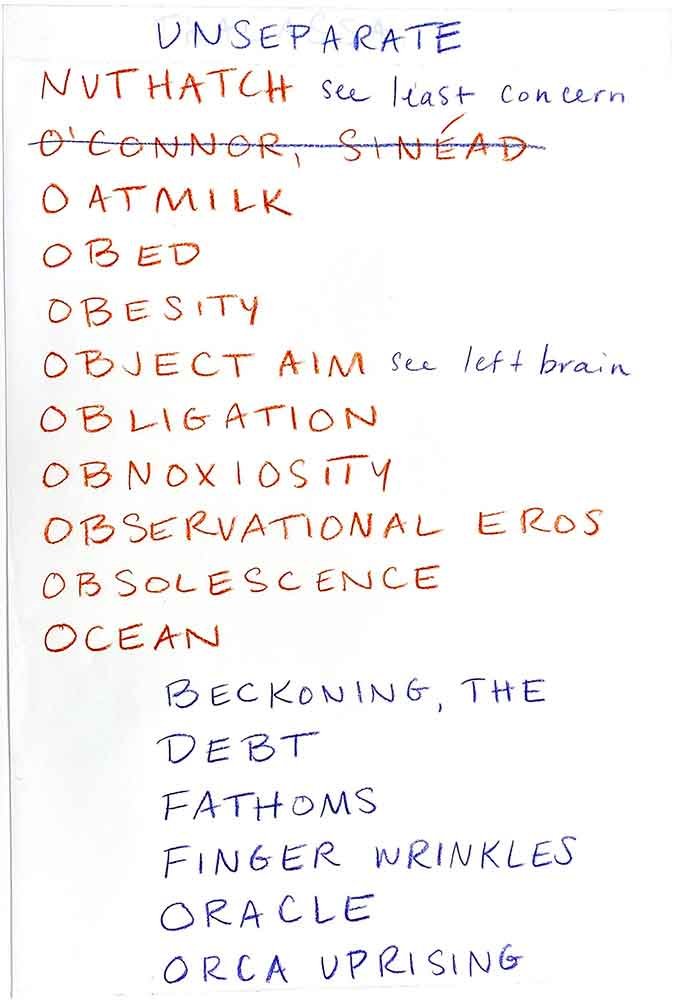 UNSEPARATE
NUTHATCH see least concern
O'CONNOR, SINÉAD
OATMILK
OBED
OBESITY
OBJECT AIM see left brain
OBLIGATION
OBNOXIOSITY
OBSERVATIONAL EROS
OBSOLESCENCE
OCEAN
BECKONING, THE
DEBT
FATHOMS
FINGER WRINKLES
ORACLE
ORCA UPRISING